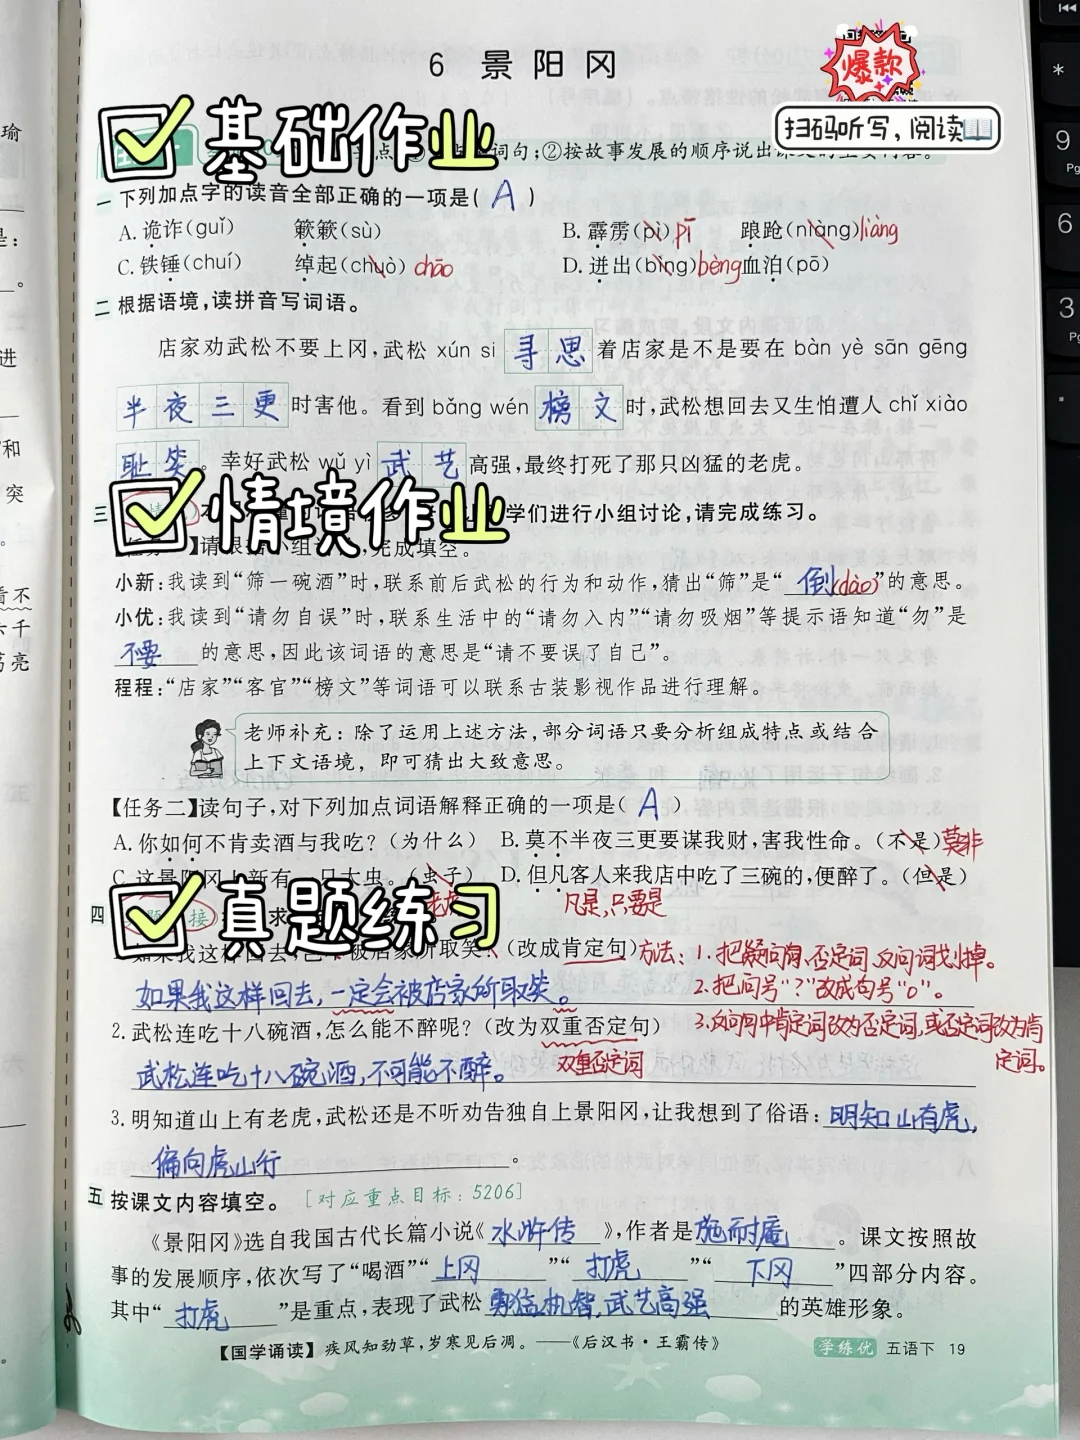 6 景阳冈
爆款
扫码听写,阅读
基础作业
词句;②按故事发展的顺序说出课文的主要内容。
一 下列加点字的读音全部正确的一项是( A )
A.诡诈(guǐ) 簌簌(sù) B.霹雳(pì) pī 踉跄(niàng) liàng
C.铁锤(chuí) 绰起(chuò) chāo D.迸出(bìng) bèng 血泊(pō)
二 根据语境,读拼音写词语。
店家劝武松不要上冈,武松 xún si 寻思 着店家是不是要在 bàn yè sān gēng
半夜三更 时害他。看到 bǎng wén 榜文 时,武松想回去又生怕遭人 chǐ xiào
耻笑 。幸好武松 wǔ yì 武艺 高强,最终打死了那只凶猛的老虎。
情境作业
三 学们进行小组讨论,请完成练习。
请根据小组讨论,完成填空。
小新:我读到“筛一碗酒”时,联系前后武松的行为和动作,猜出“筛”是“ 倒(dào) ”的意思。
小优:我读到“请勿自误”时,联系生活中的“请勿入内”“请勿吸烟”等提示语知道“勿”是
不要 的意思,因此该词语的意思是“请不要误了自己”。
程程:“店家”“客官”“榜文”等词语可以联系古装影视作品进行理解。
老师补充:除了运用上述方法,部分词语只要分析组成特点或结合
上下文语境,即可猜出大致意思。
【任务二】读句子,对下列加点词语解释正确的一项是( A )
A.你如何不肯卖酒与我吃?(为什么) B.莫不半夜三更要谋我财,害我性命。(不是) 莫非
C.这景阳冈上新有一只大虫。(虫子) D.但凡客人来我店中吃了三碗的,便醉了。(但是)
凡是,只要是
真题练习
四
如果我这样回去,岂不被店家所取笑?(改成肯定句) 方法:1.把疑问词、否定词、反问词划掉。
如果我这样回去,一定会被店家所取笑。 2.把问号“?”改成句号“。”。
2.武松连吃十八碗酒,怎么能不醉呢?(改为双重否定句) 3.反问句中肯定词改为否定词,或否定词改为肯
定词。
武松连吃十八碗酒,不可能不醉。 双重否定词
3.明知道山上有老虎,武松还是不听劝告独自上景阳冈,让我想到了俗语: 明知山有虎,
偏向虎山行 。
五 按课文内容填空。 [对应重点目标:5206]
《景阳冈》选自我国古代长篇小说《 水浒传 》,作者是 施耐庵 。课文按照故
事的发展顺序,依次写了“喝酒”“ 上冈 ”“ 打虎 ”“ 下冈 ”四部分内容。
其中“ 打虎 ”是重点,表现了武松 勇猛机智,武艺高强 的英雄形象。
【国学诵读】疾风知劲草,岁寒见后凋。——《后汉书·王霸传》
学练优 五语下 19